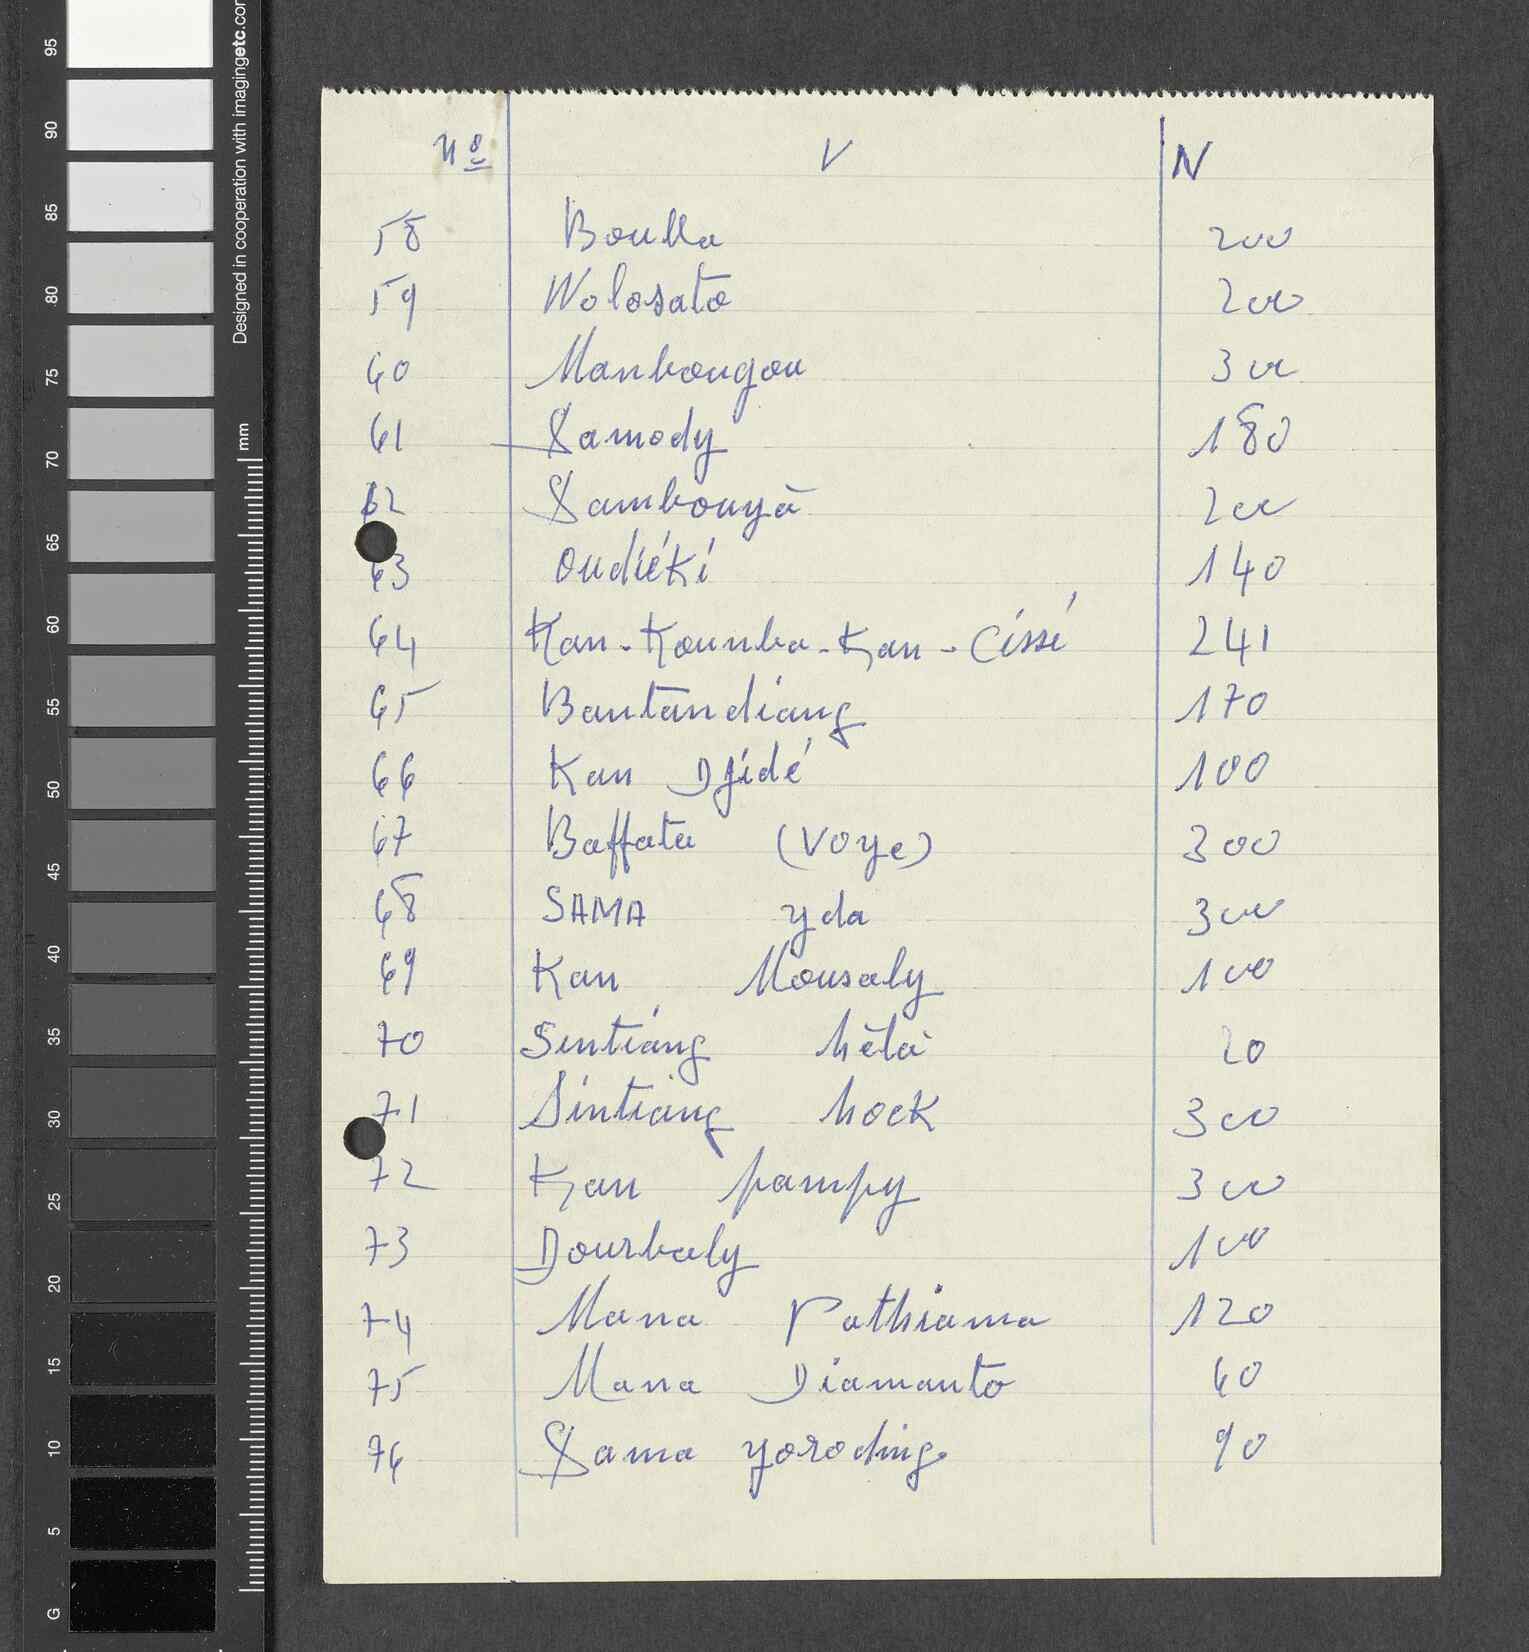 95
90
85
80
75
70
65
60
55
50
45
40
35
30
25
20
15
10
5
G
Designed in cooperation with imagingetc.com
mm
Nº V N
58 Boulla 200
59 Wolosato 200
60 Mankougou 300
61 Samody 180
62 Sambouyā 200
63 Oudiéki 140
64 Kan-Koumba-Kan-Cissé 241
65 Bantandiang 170
66 Kan Djidé 100
67 Baffata (Voye) 300
68 SAMA yda 300
69 Kan Mousaly 100
70 Sintiang hèla 20
71 Sintiang hock 300
72 Kan pampy 300
73 Dourbaly 100
74 Mana Pathiama 120
75 Mana Diamanto 60
76 Sama yoroding 90